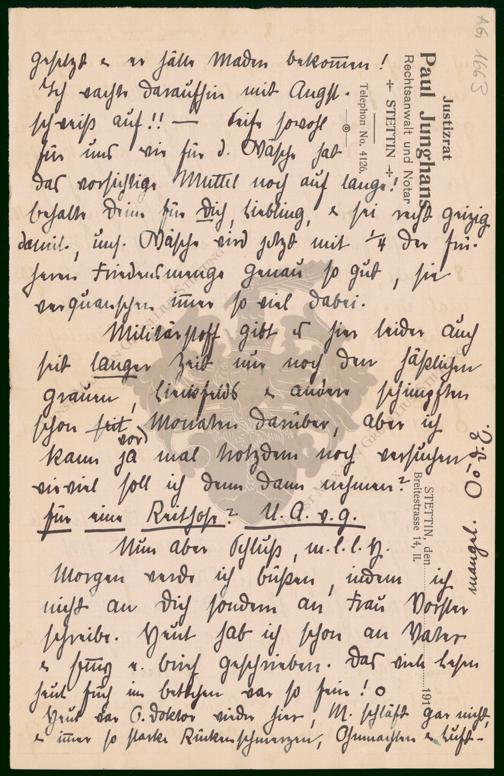 gesetzt u. er hätte Maden bekommen!
Ich wachte daraufhin mit Angst-
schweiß auf!! — Seife sowohl
für uns wie für d. Wäsche hat
das vorsichtige Muttel noch auf lange!
behalte Deine für Dich, Liebling, u. sei recht geizig
damit. uns. Wäsche wird jetzt mit ¼ der frü-
heren Friedensmenge genau so gut, sie
verquanschen immer so viel dabei.
Militärstoff gibt es hier leider auch
seit langer Zeit nur noch den häßlichen
grauen, u. andere schimpften
schon seit vor Monaten darüber, aber ich
kann ja mal trotzdem noch versuchen
wieviel soll ich denn dann nehmen?
für eine Reithose? U. A. w. g.
Nun aber Schluß, m. l. l. H.
Morgen werde ich büßen, indem ich
nicht an Dich sondern an Frau Vorster
schreibe. Heut hab ich schon an Vater
u. geschrieben. Das viele Lesen
heut früh im Bettchen war so fein!
Heut war O. Doktor wieder hier, M. schläft gar nicht,
u. immer so starke Rückenschmerzen, Ohnmachten u. Luft-
mangel.
Justizrat
Paul Junghans
Rechtsanwalt und Notar
STETTIN
Telephon No. 4126.
STETTIN, den
Breitestrasse 14, II.
191
AG 1663